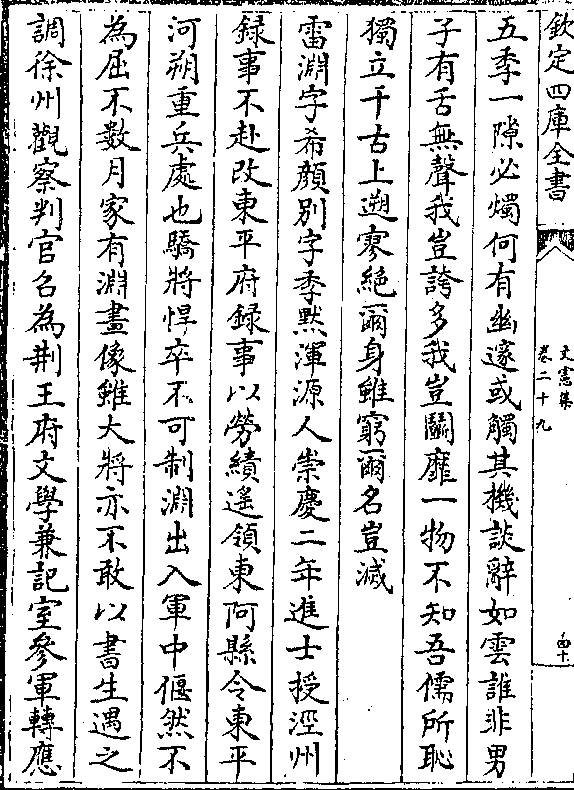 欽定四庫全書
文憲集
卷二十九
四十
五季一隙必燭何有幽邃或觸其機談辭如雲誰非男
子有舌無聲我豈誇多我豈鬬靡一物不知吾儒所恥
獨立千古上遡寥絶爾身雖窮爾名豈滅
雷淵字希顔别字季黙渾源人崇慶二年進士授涇州
録事不赴改東平府録事以勞績遥領東阿縣令東平
河朔重兵處也驕將悍卒不可制淵出入軍中偃然不
為屈不數月家有淵畫像雖大將亦不敢以書生遇之
調徐州觀察判官名為荆王府文學兼記室參軍轉應